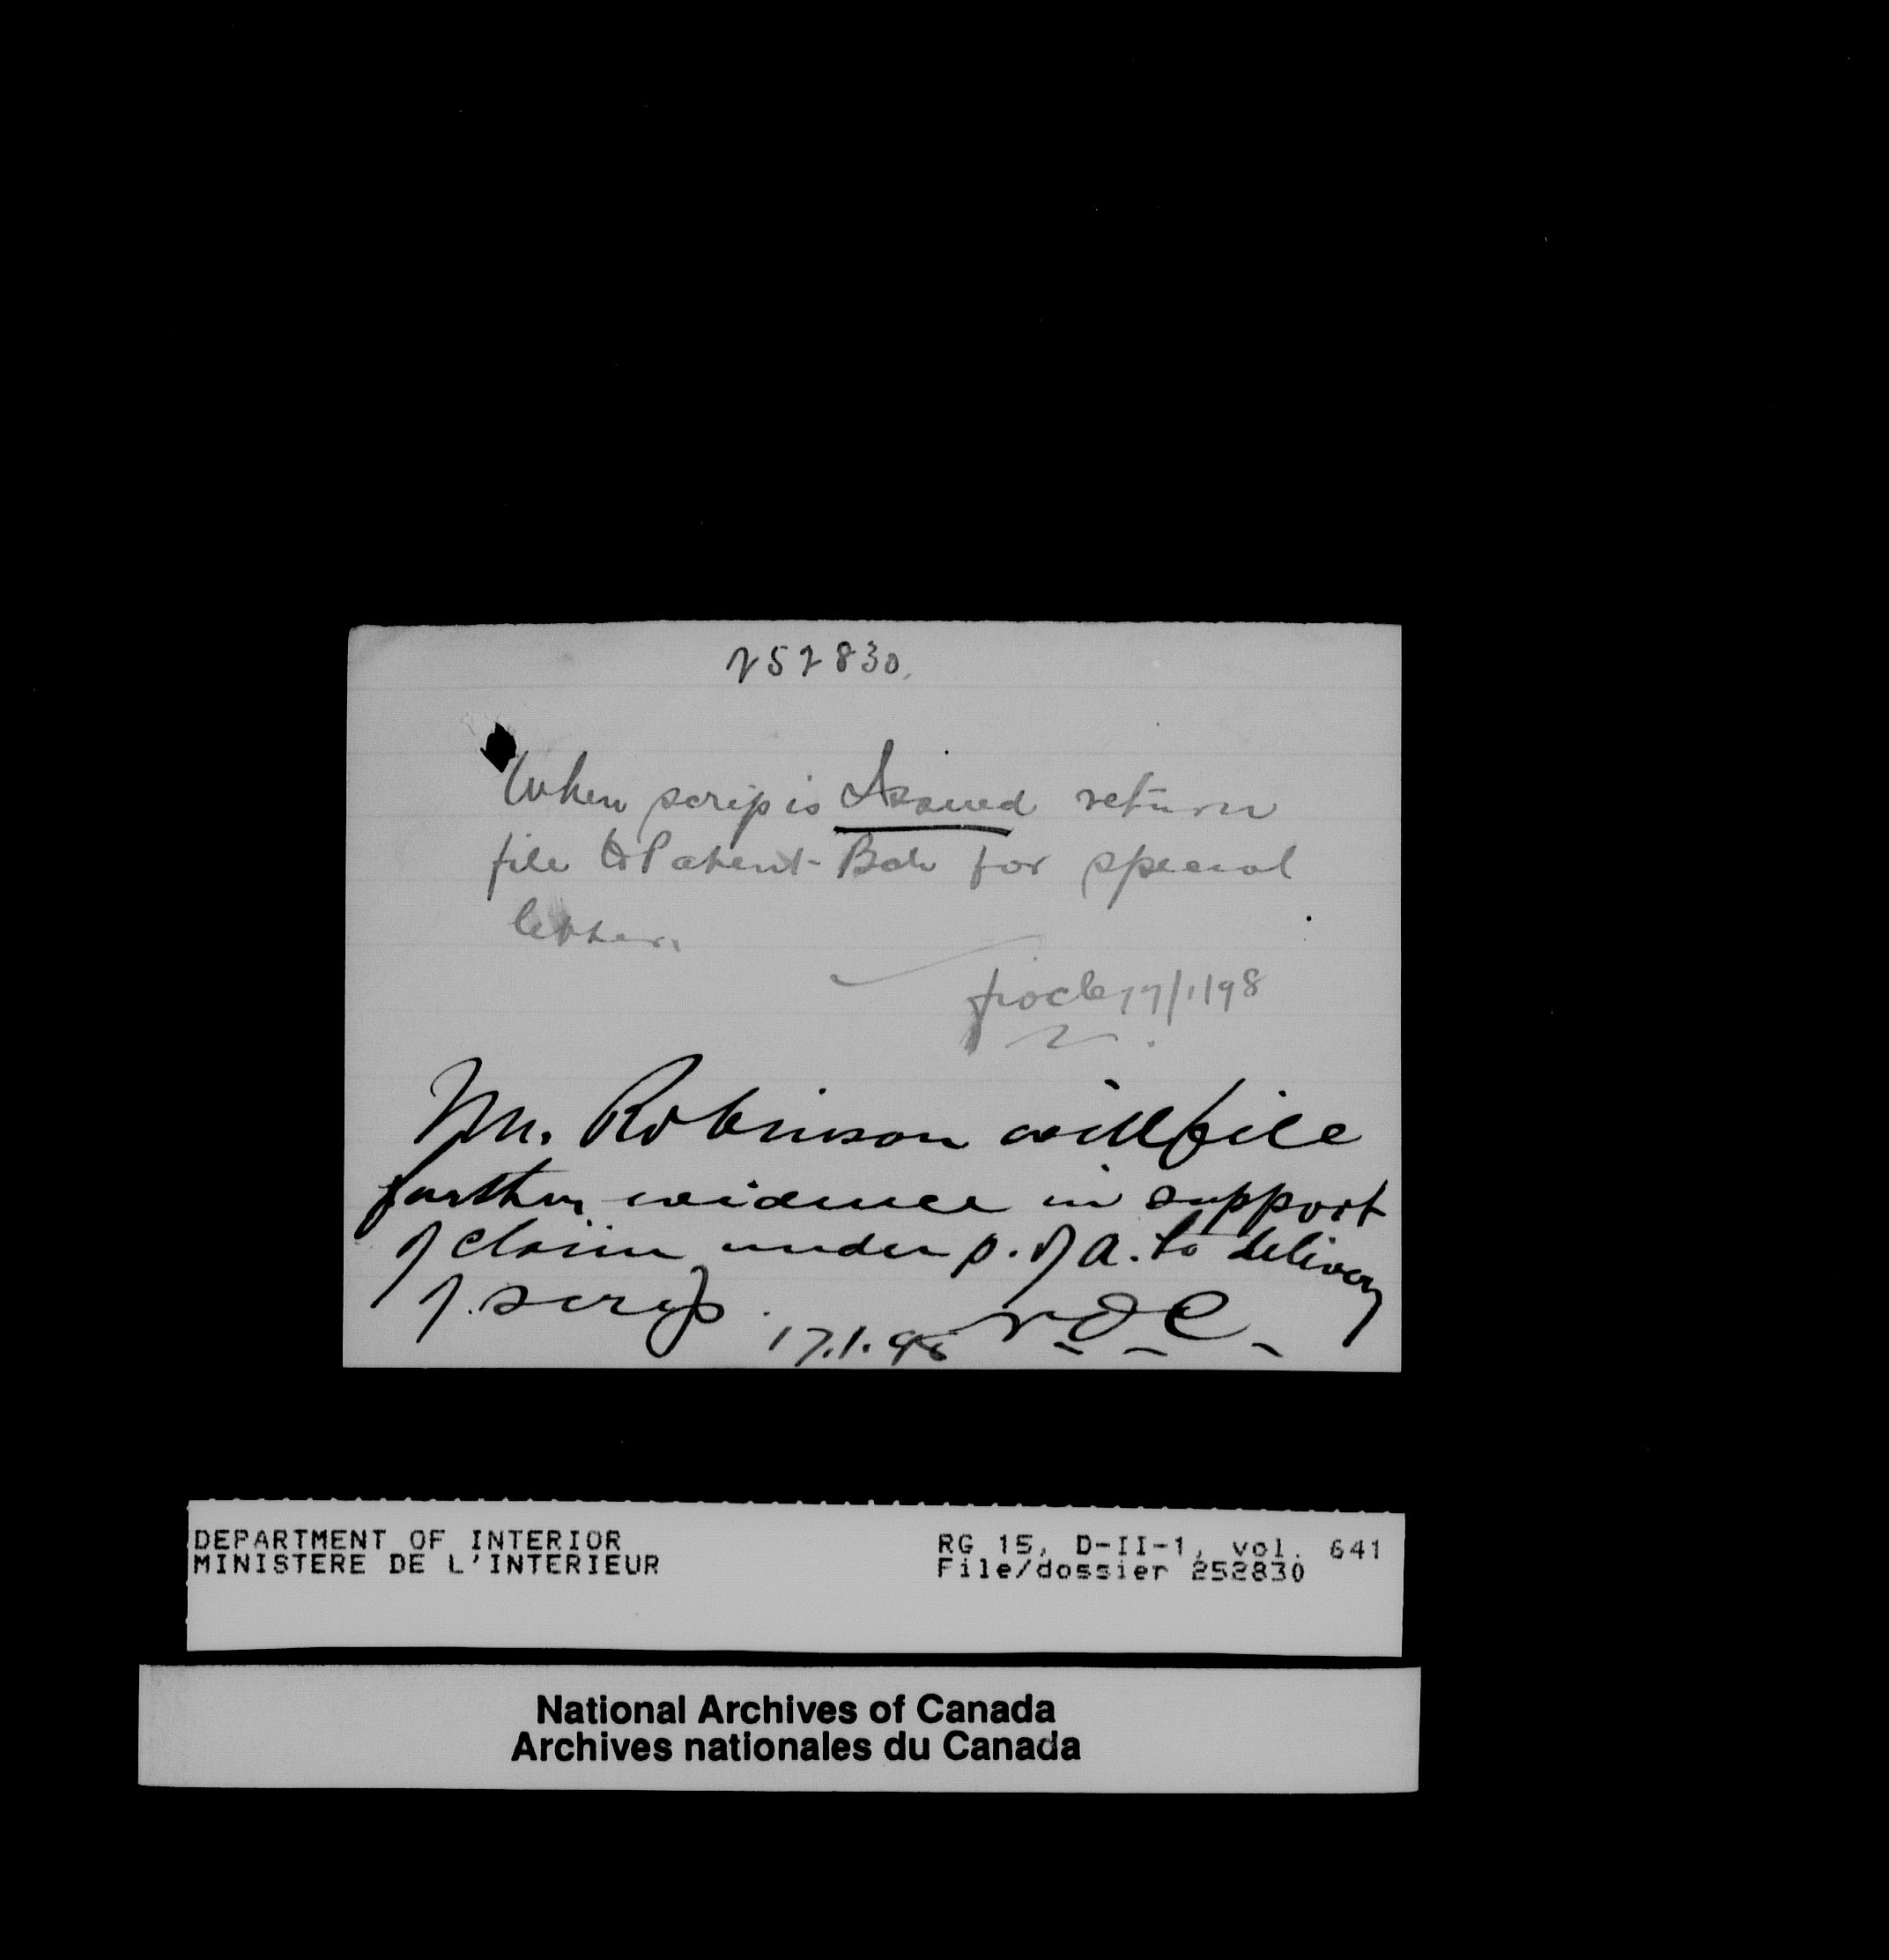 252830.
When scrip is Issued return
file to Patent Bch for special
letter.
17/1/98
Mr. Robinson will file
further evidence in support
of claim under p. of a. to delivery
of scrip.
17.1.98
DEPARTMENT OF INTERIOR
MINISTERE DE L'INTERIEUR
RG 15, D-II-1, vol. 641
File/dossier 252830
National Archives of Canada
Archives nationales du Canada